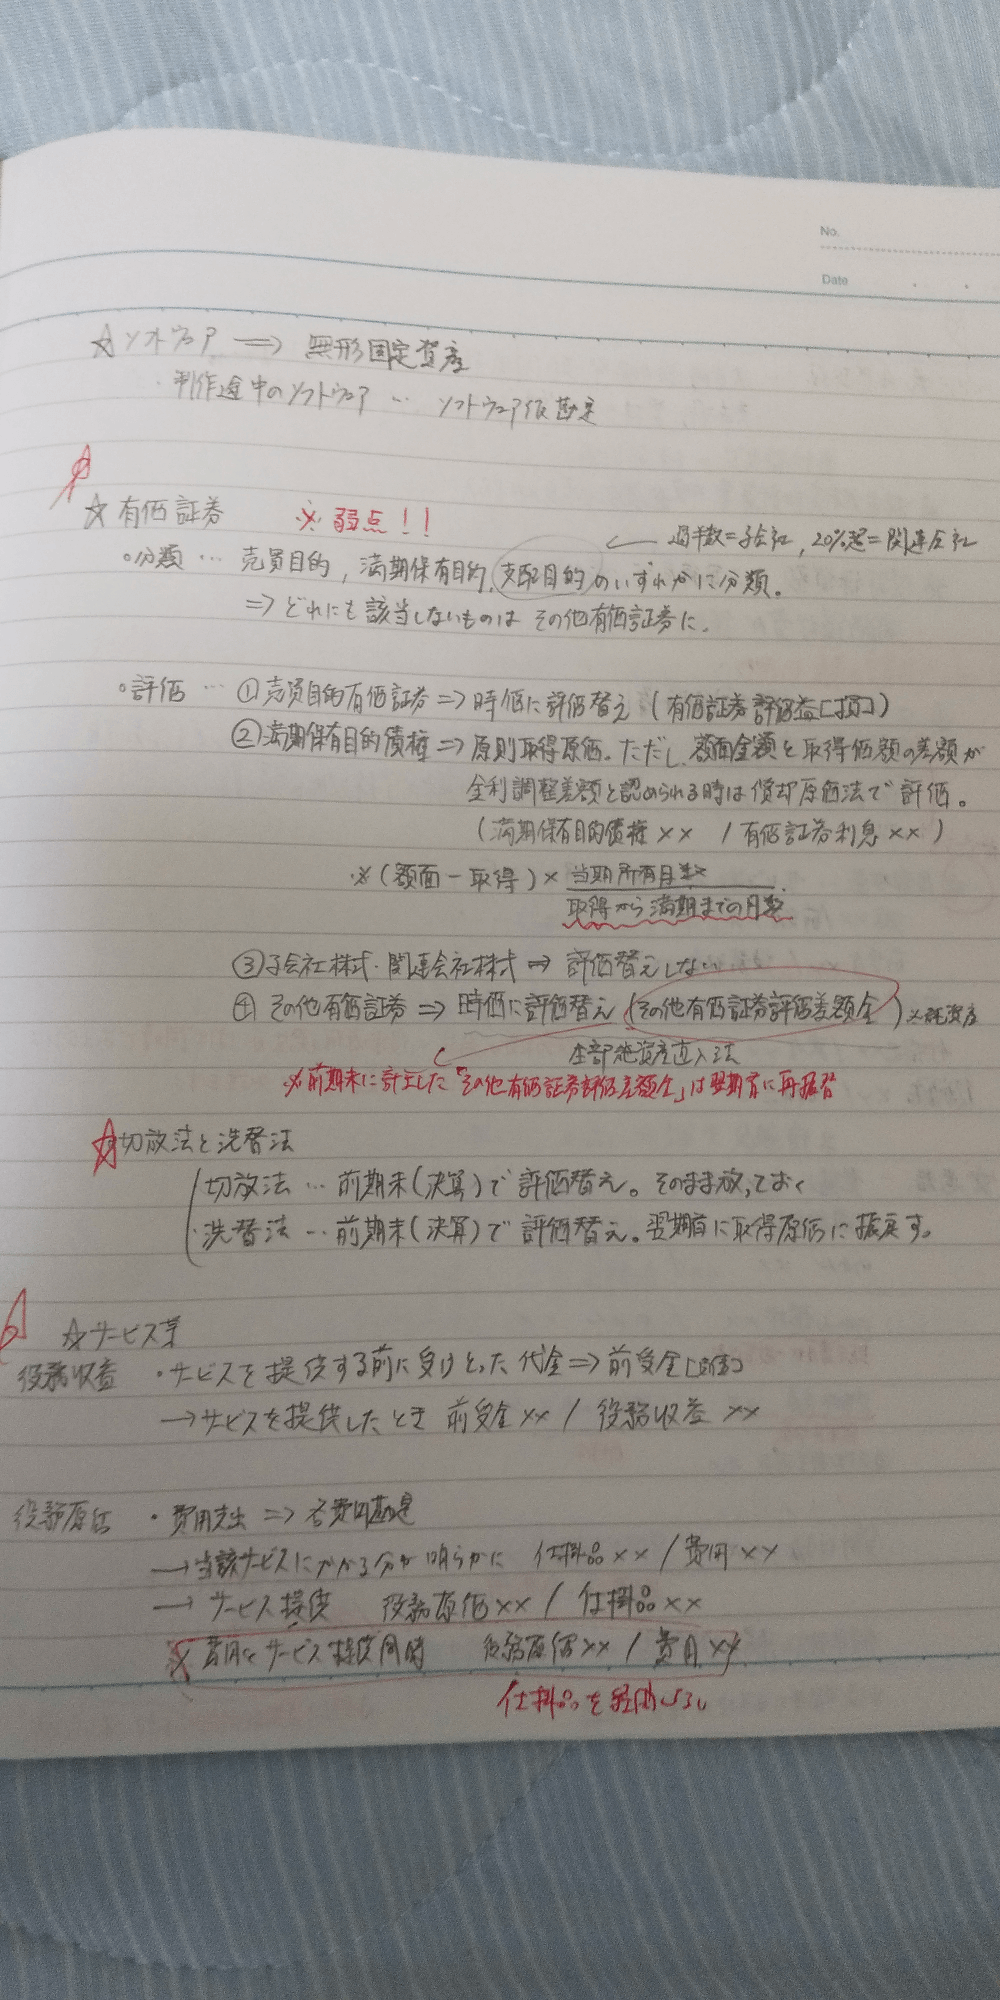 No.
Date
☆ソフトウェア ⇒ 無形固定資産
・制作途中のソフトウェア … ソフトウェア仮勘定
☆有価証券 ※弱点!!
← 過半数=子会社, 20%超=関連会社
○分類 … 売買目的, 満期保有目的, 支配目的のいずれかに分類。
⇒どれにも該当しないものは その他有価証券に。
○評価 … ①売買目的有価証券⇒時価に評価替え (有価証券評価益[損])
②満期保有目的債権⇒原則取得原価。ただし、額面金額と取得価額の差額が
金利調整差額と認められる時は償却原価法で評価。
(満期保有目的債権×× / 有価証券利息××)
※(額面-取得)× 当期所有月数
取得から満期までの月数
③子会社株式・関連会社株式⇒ 評価替えしない
④その他有価証券⇒時価に評価替え(その他有価証券評価差額金)※純資産
全部純資産直入法
※前期末に計上した「その他有価証券評価差額金」は翌期首に再振替
☆切放法と洗替法
・切放法 … 前期末(決算)で評価替え。そのまま放っておく
・洗替法 … 前期末(決算)で評価替え。翌期首に取得原価に振戻す。
☆サービス業
役務収益 ・サービスを提供する前に受けとった代金⇒前受金[負債]
→サービスを提供したとき 前受金×× / 役務収益 ××
役務原価 ・費用支出 ⇒各費用勘定
→当該サービスにかかる分が明らかに 仕掛品×× / 費用××
→サービス提供 役務原価×× / 仕掛品××
※費用とサービス提供同時 役務原価×× / 費用××
仕掛品を経由しない